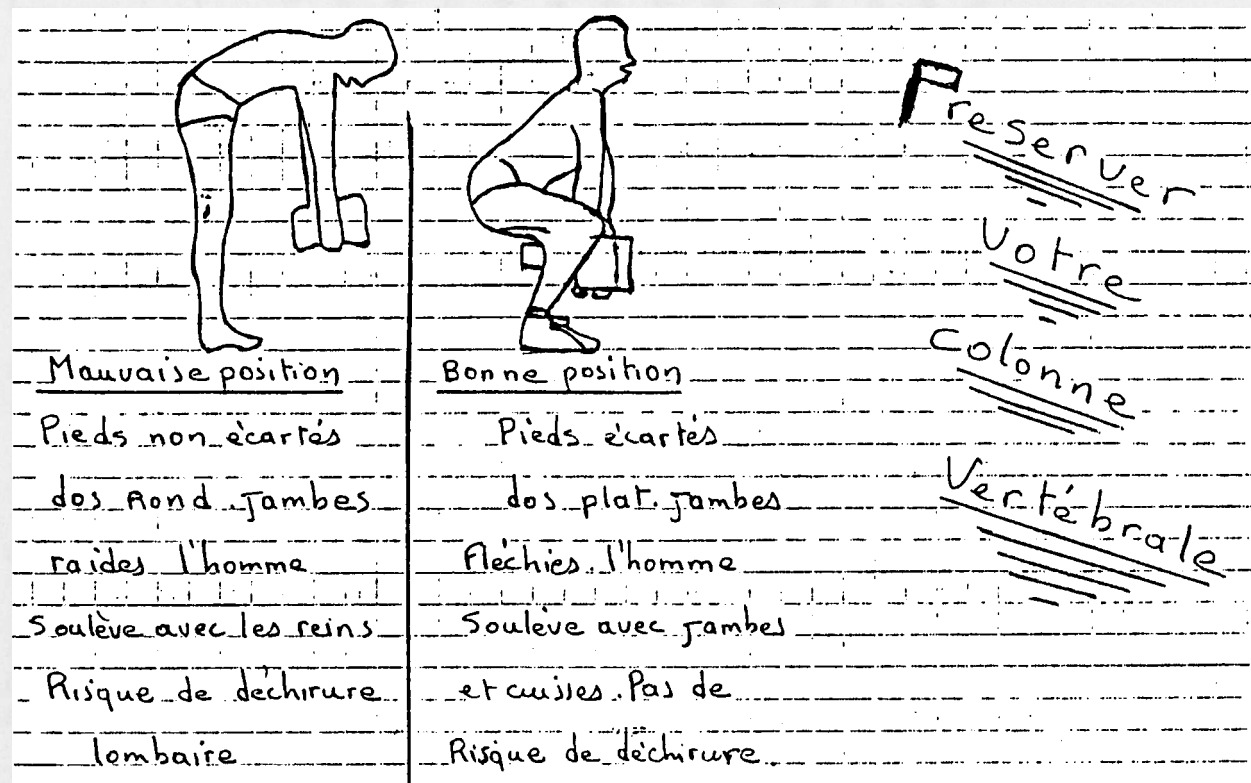 Mauvaise position
Pieds non écartés
dos Rond. Jambes
raides l'homme
Soulève avec les reins
Risque de déchirure
lombaire
Bonne position
Pieds écartés
dos plat. Jambes
Fléchies. l'homme
Soulève avec Jambes
et cuisses. Pas de
Risque de déchirure
Preserver
Votre
Colonne
Vertébrale